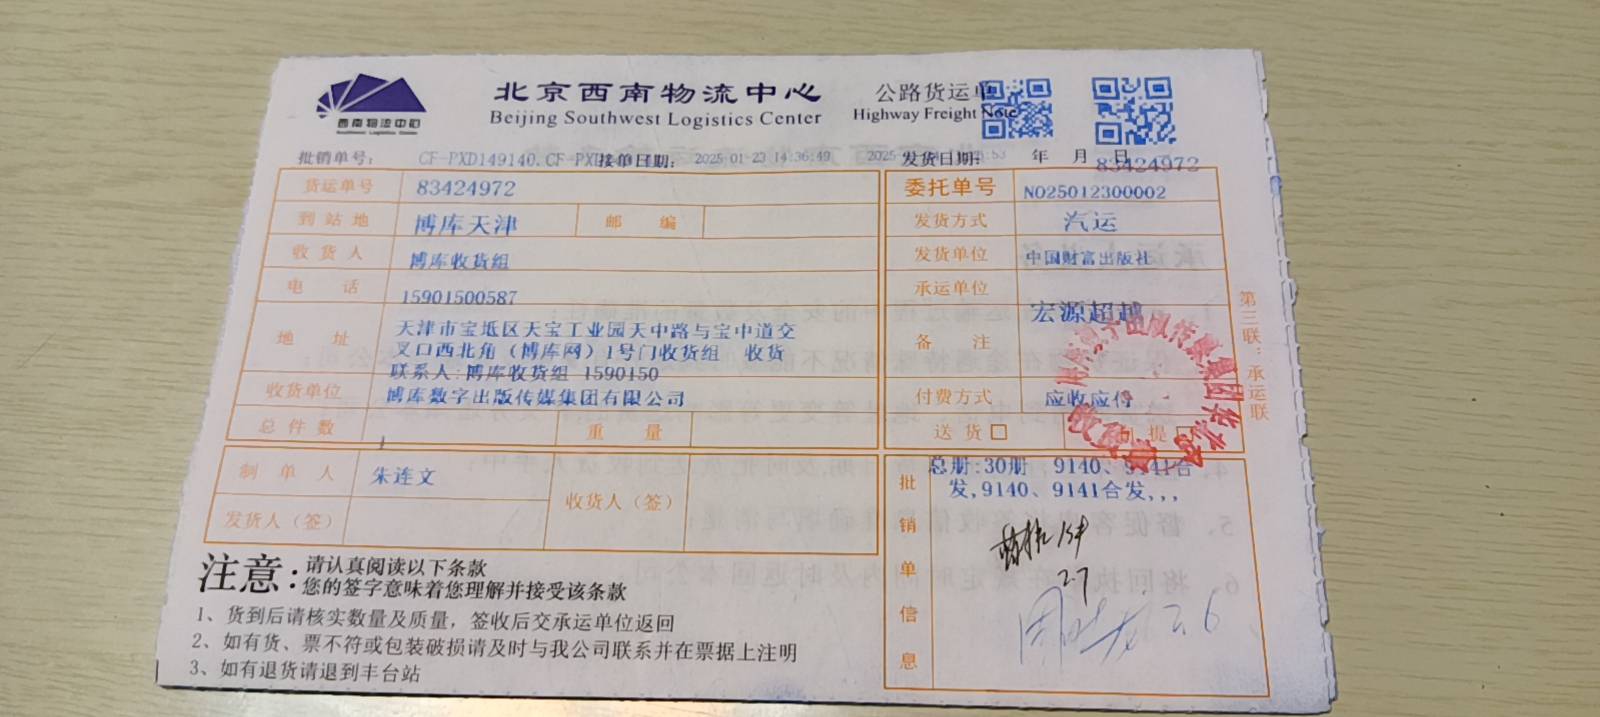 西南物流中心
Southwest Logistics Center
北京西南物流中心
Beijing Southwest Logistics Center
公路货运单
Highway Freight Note
批销单号: CF-PXD149140.CF-PX 接单日期: 2025-01-23 14:36:49 发货日期: 年 月 日
83424972
货运单号 83424972
到站地 博库天津 邮编
收货人 博库收货组
电话 15901500587
地址 天津市宝坻区天宝工业园天中路与宝中道交
叉口西北角（博库网）1号门收货组 收货
联系人:博库收货组 1590150
收货单位 博库数字出版传媒集团有限公司
总件数 1 重量
制单人 朱连文
发货人（签） 收货人（签）
委托单号 NO25012300002
发货方式 汽运
发货单位 中国财富出版社
承运单位 宏源超越
备注
付费方式 应收应付
送货 自提
批销单信息
总册:30册 9140、9141合
发,9140、9141合发,,,
15件
2.7
2.6
第三联：承运联
注意:
请认真阅读以下条款
您的签字意味着您理解并接受该条款
1、货到后请核实数量及质量，签收后交承运单位返回
2、如有货、票不符或包装破损请及时与我公司联系并在票据上注明
3、如有退货请退到丰台站